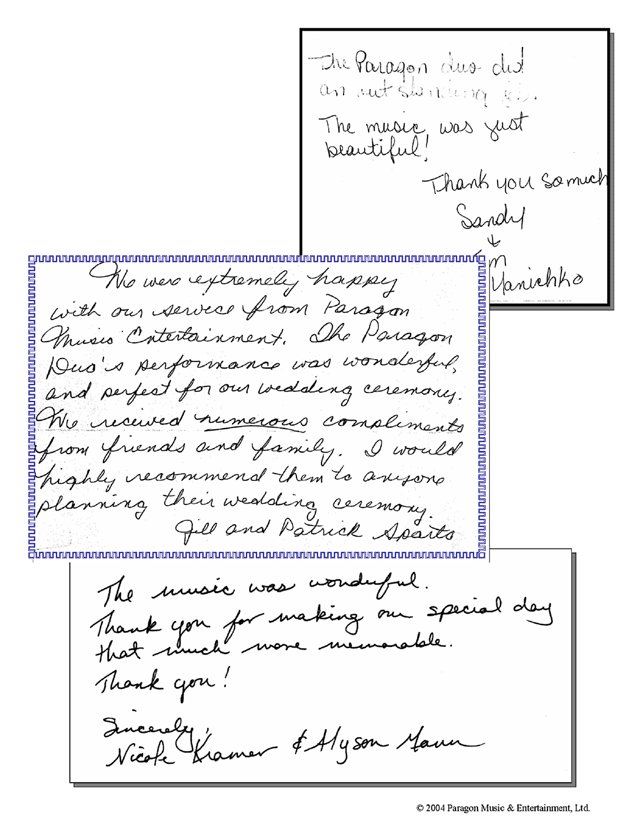 The Paragon duo did
an outstanding job.
The music was just
beautiful!
Thank you so much
Sandy
↓
Yanichko
We were extremely happy
with our service from Paragon
Music Entertainment. The Paragon
Duo's performance was wonderful,
and perfect for our wedding ceremony.
We received numerous compliments
from friends and family. I would
highly recommend them to anyone
planning their wedding ceremony.
Jill and Patrick Sparts
The music was wonderful.
Thank you for making our special day
that much more memorable.
Thank you!
Sincerely,
Nicole Kramer & Alyson Mann
© 2004 Paragon Music & Entertainment, Ltd.